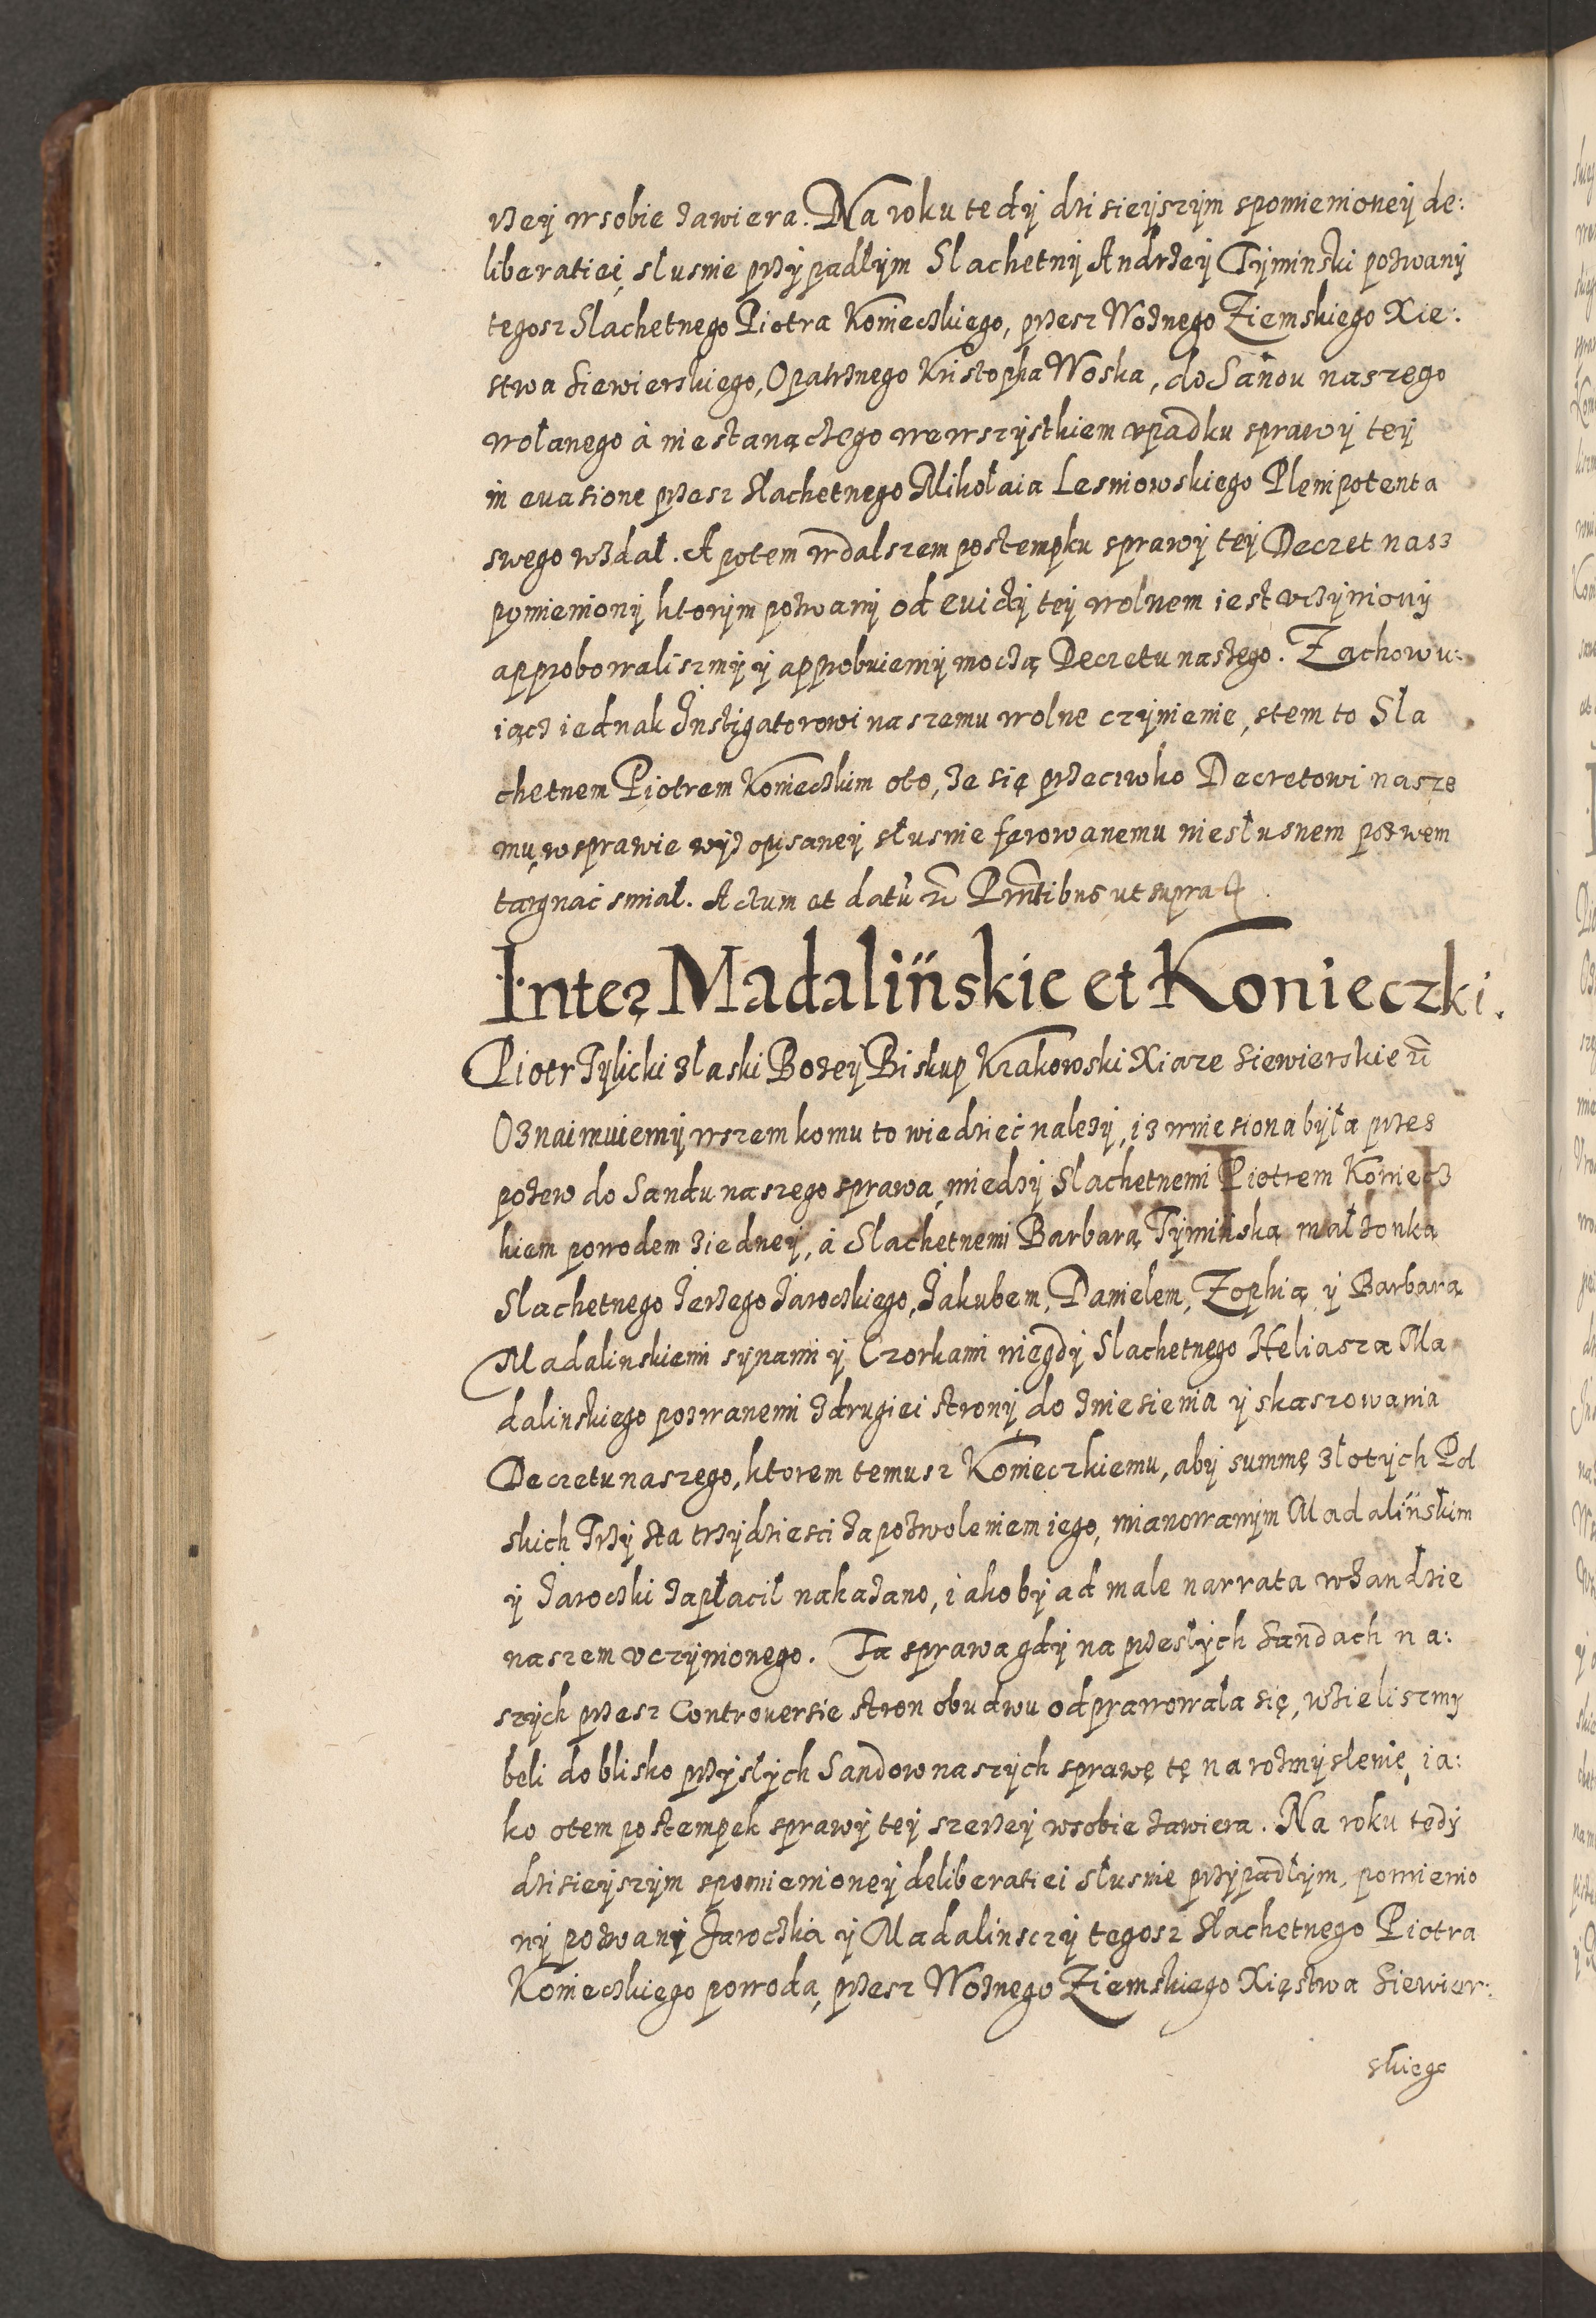 rzey w sobie zawiera. Na roku tedy dzisieyszym spomienioney de:
liberatiei, slusnie przypadłym Slachetny Andrzey Tyminski pozwany
tegosz Slachetnego Piotra Konieczkiego, przesz Woznego Ziemskiego Xie:
stwa Siewierskiego, Opatrznego Kristopha Woska, do Sandu naszego
wołanego à niestanączego wewszystkiem vpadku sprawy tey
in euasione przesz Slachetnego Mikołaia Lesniowskiego Plenipotenta
swego wzdał. A potem w dalszem postempku sprawy tey Decret nasz
pomieniony ktorym pozwany od euictÿ tey wolnem iest vczyniony
approbowaliszmy y approbuiemy moczą Decretu naszego. Zachowu:
iącz iednak Instigatorowi naszemu wolne czynienie, stem to Sla
chetnem Piotrem Konieczkim oto, ze się przeciwko Decretowi nasze
mu, w sprawie wyz opisaney słusnie ferowanemu niesłusnem pozwem
targnąc smiał. Actum et datū rc Prntibus ut supra
Inter Madalińskie et Konieczki.
Piotr Tylicki z łaski Bozey Biskup Krakowski Xiaze Siewierskie rc
Oznaimuiemy wszem komu to wiedziec nalezy, iz wniesiona była przes
pozew do Sandu naszego sprawa, miedzy Slachetnemi Piotrem Koniecz
kiem powodem ziedney, à Slachetnemi Barbarą Tymińską małzonką
Slachetnego Jerzego Jaroczkiego, Jakubem, Danielem, Zophią y Barbarą
Madalinskiemi synami y Czorkami niegdy Slachetnego Heliasza Ma
dalinskiego pozwanemi z drugiei strony do zniesienia y skaszowania
Decretu naszego, ktorem temusz Konieczkiemu, aby summę złotych Pol
skich Trzy sta trzydziesci za pozwoleniem iego, mianowanym Madalińskim
y Jaroczki zapłacił nakazano, iakoby ad male narrata w Sandzie
naszem vczynionego. Ta sprawa gdy na przeszłych Sandach na:
szych przesz Controuersie stron obudwu odprawowała się, wzieliszmy
beli do blisko przyszłych Sandow naszych sprawę tę na rozmyslenie, ia:
ko otem postempek sprawy tey szerzey wsobie zawiera. Na roku tedy
dzisieyszym spomienioney deliberatiei słusnie przypadłym, pomienio
ny pozwany Jaroczka y Madalinsczy tegosz Slachetnego Piotra
Konieczkiego powoda, przesz Woznego Ziemskiego Xięstwa Siewier:
skiego